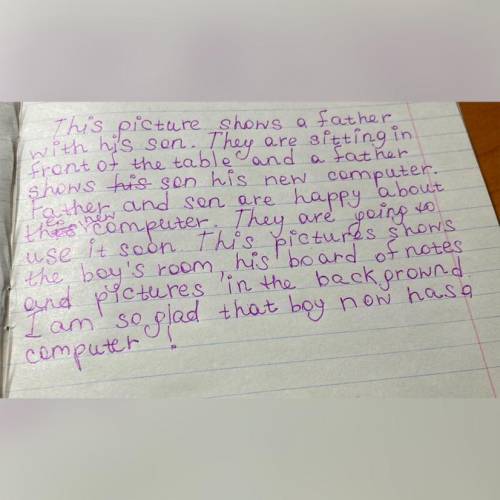 This picture shows a father
with his son. They are sitting in
front of the table and a father
shows his son his new computer.
Father and son are happy about
the new computer. They are going to
use it soon. This pictures shows
the boy's room, his board of notes
and pictures in the backgrownd.
I am so glad that boy now has a
computer!